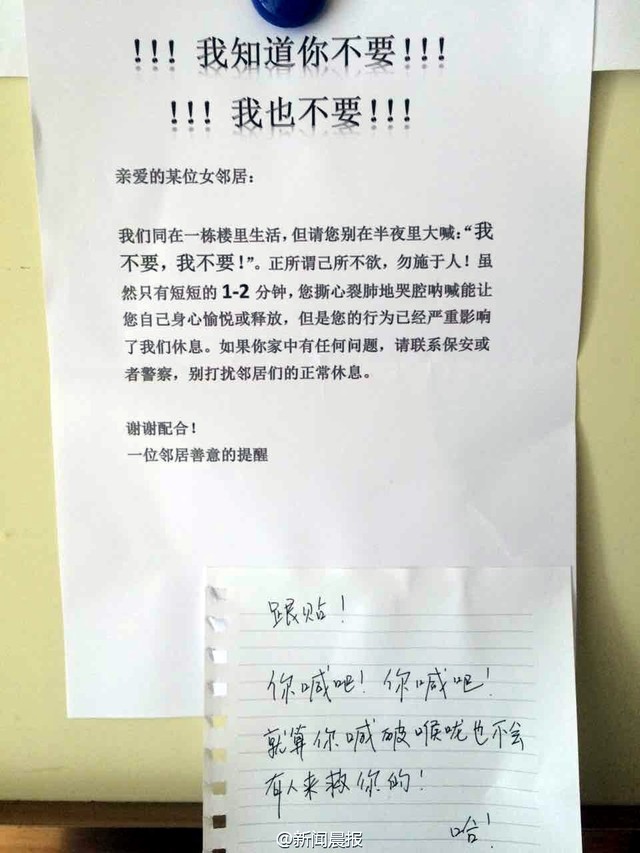 !!! 我知道你不要!!!
!!! 我也不要!!!
亲爱的某位女邻居：
我们同在一栋楼里生活，但请您别在半夜里大喊：“我
不要，我不要！”。正所谓己所不欲，勿施于人！虽
然只有短短的 1-2 分钟，您撕心裂肺地哭腔呐喊能让
您自己身心愉悦或释放，但是您的行为已经严重影响
了我们休息。如果你家中有任何问题，请联系保安或
者警察，别打扰邻居们的正常休息。
谢谢配合！
一位邻居善意的提醒
跟贴！
你喊吧！你喊吧！
就算你喊破喉咙也不会
有人来救你的！
哈！
@新闻晨报